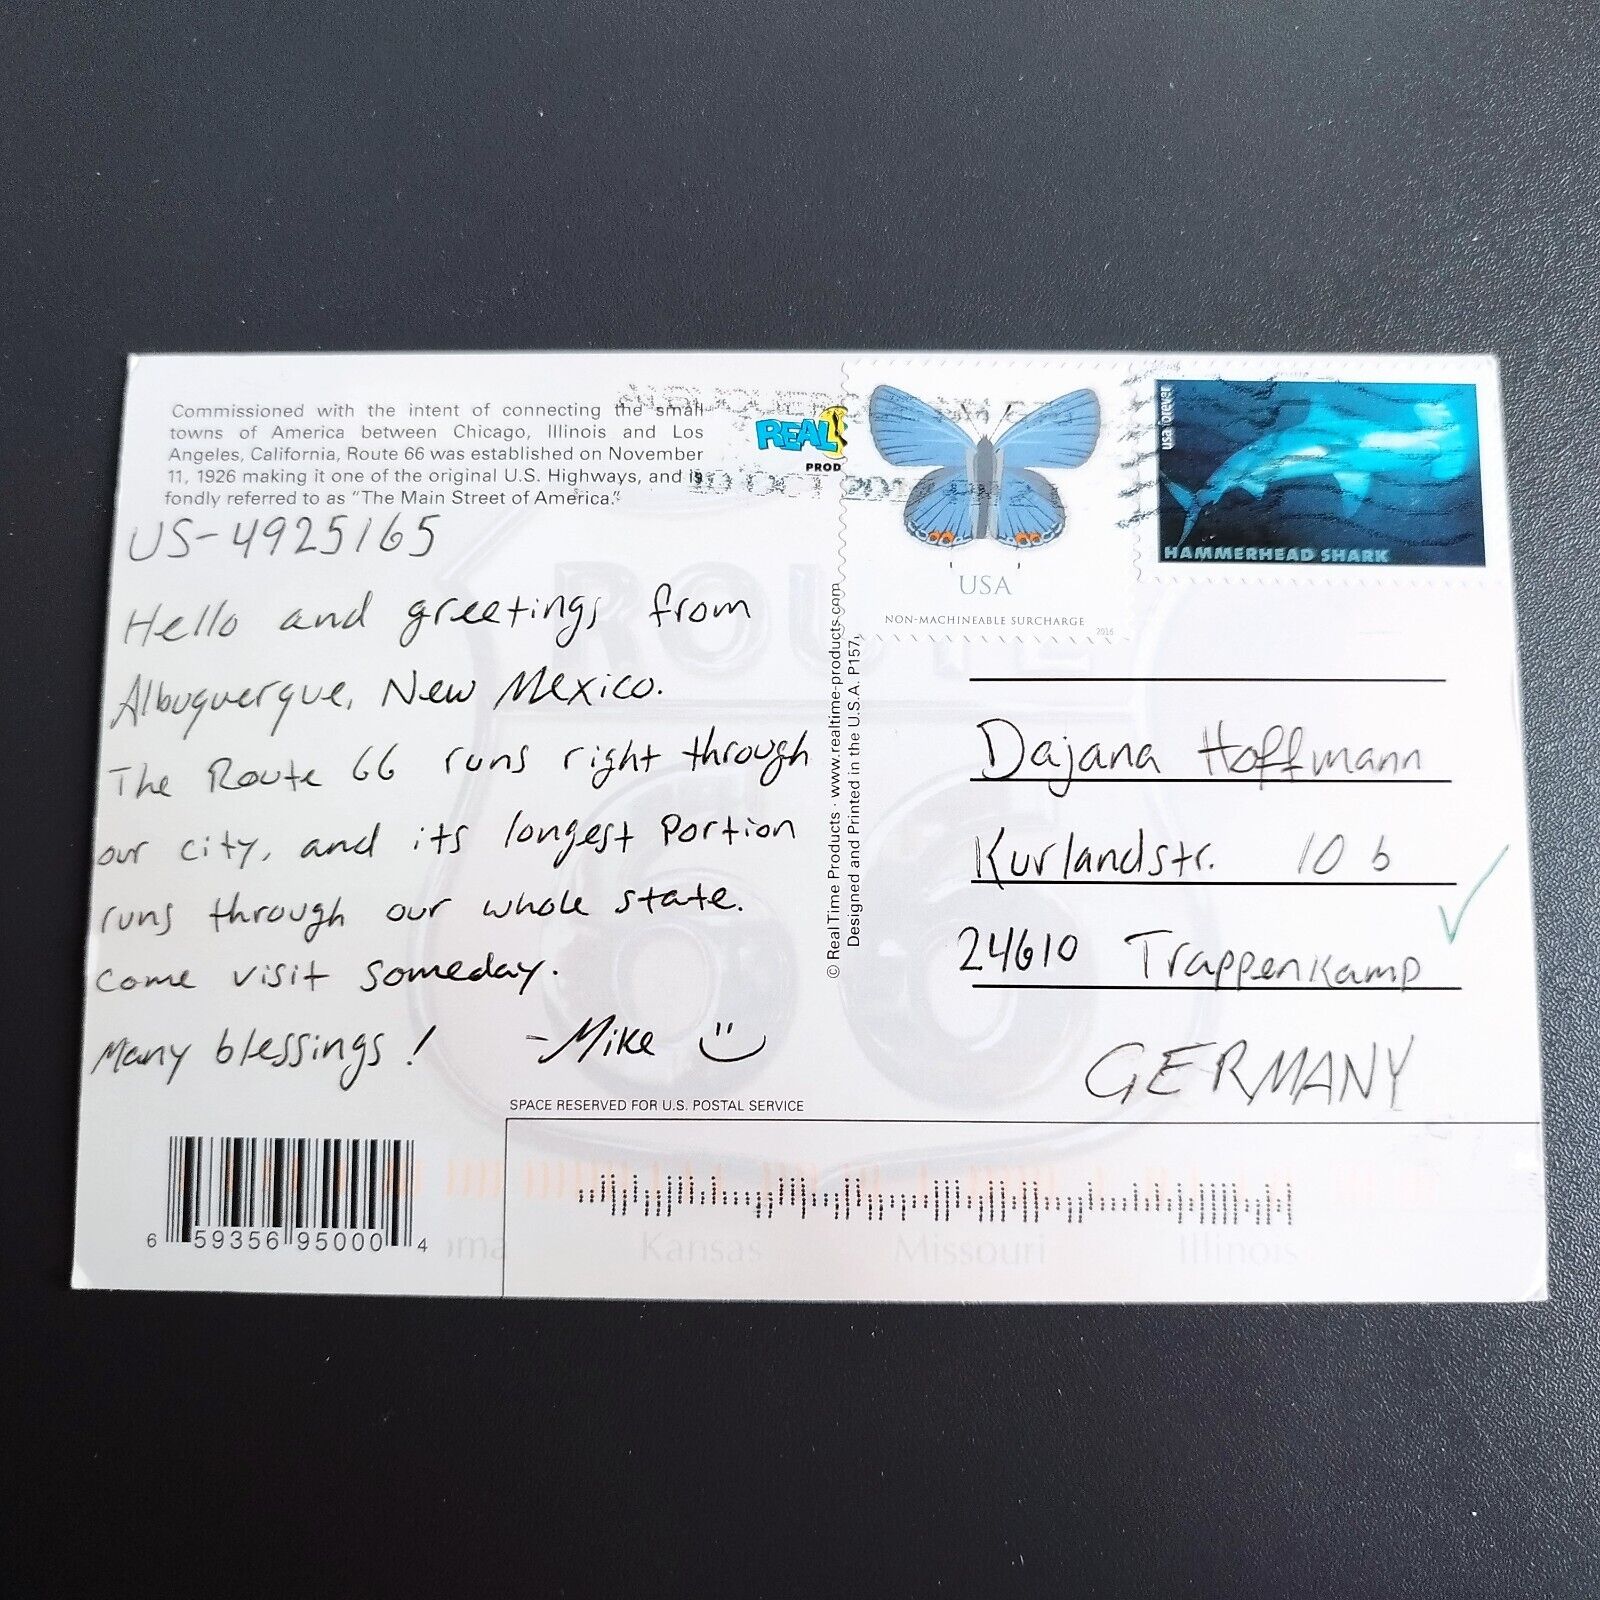 Commissioned with the intent of connecting the small
towns of America between Chicago, Illinois and Los
Angeles, California, Route 66 was established on November
11, 1926 making it one of the original U.S. Highways, and is
fondly referred to as "The Main Street of America."
US-4925165
Hello and greetings from
Albuquerque, New Mexico.
The Route 66 runs right through
our city, and its longest portion
runs through our whole state.
Come visit someday.
Many blessings! -Mike
6 59356 95000 4
SPACE RESERVED FOR U.S. POSTAL SERVICE
REAL
PROD
10 OCT
© RealTime Products · www.realtime-products.com
Designed and Printed in the U.S.A. P157
USA
NON-MACHINEABLE SURCHARGE
2016
usa forever
HAMMERHEAD SHARK
Dajana Hoffmann
Kurlandstr. 10 b
24610 Trappenkamp
GERMANY
ROUTE
66
Kansas
Missouri
Illinois